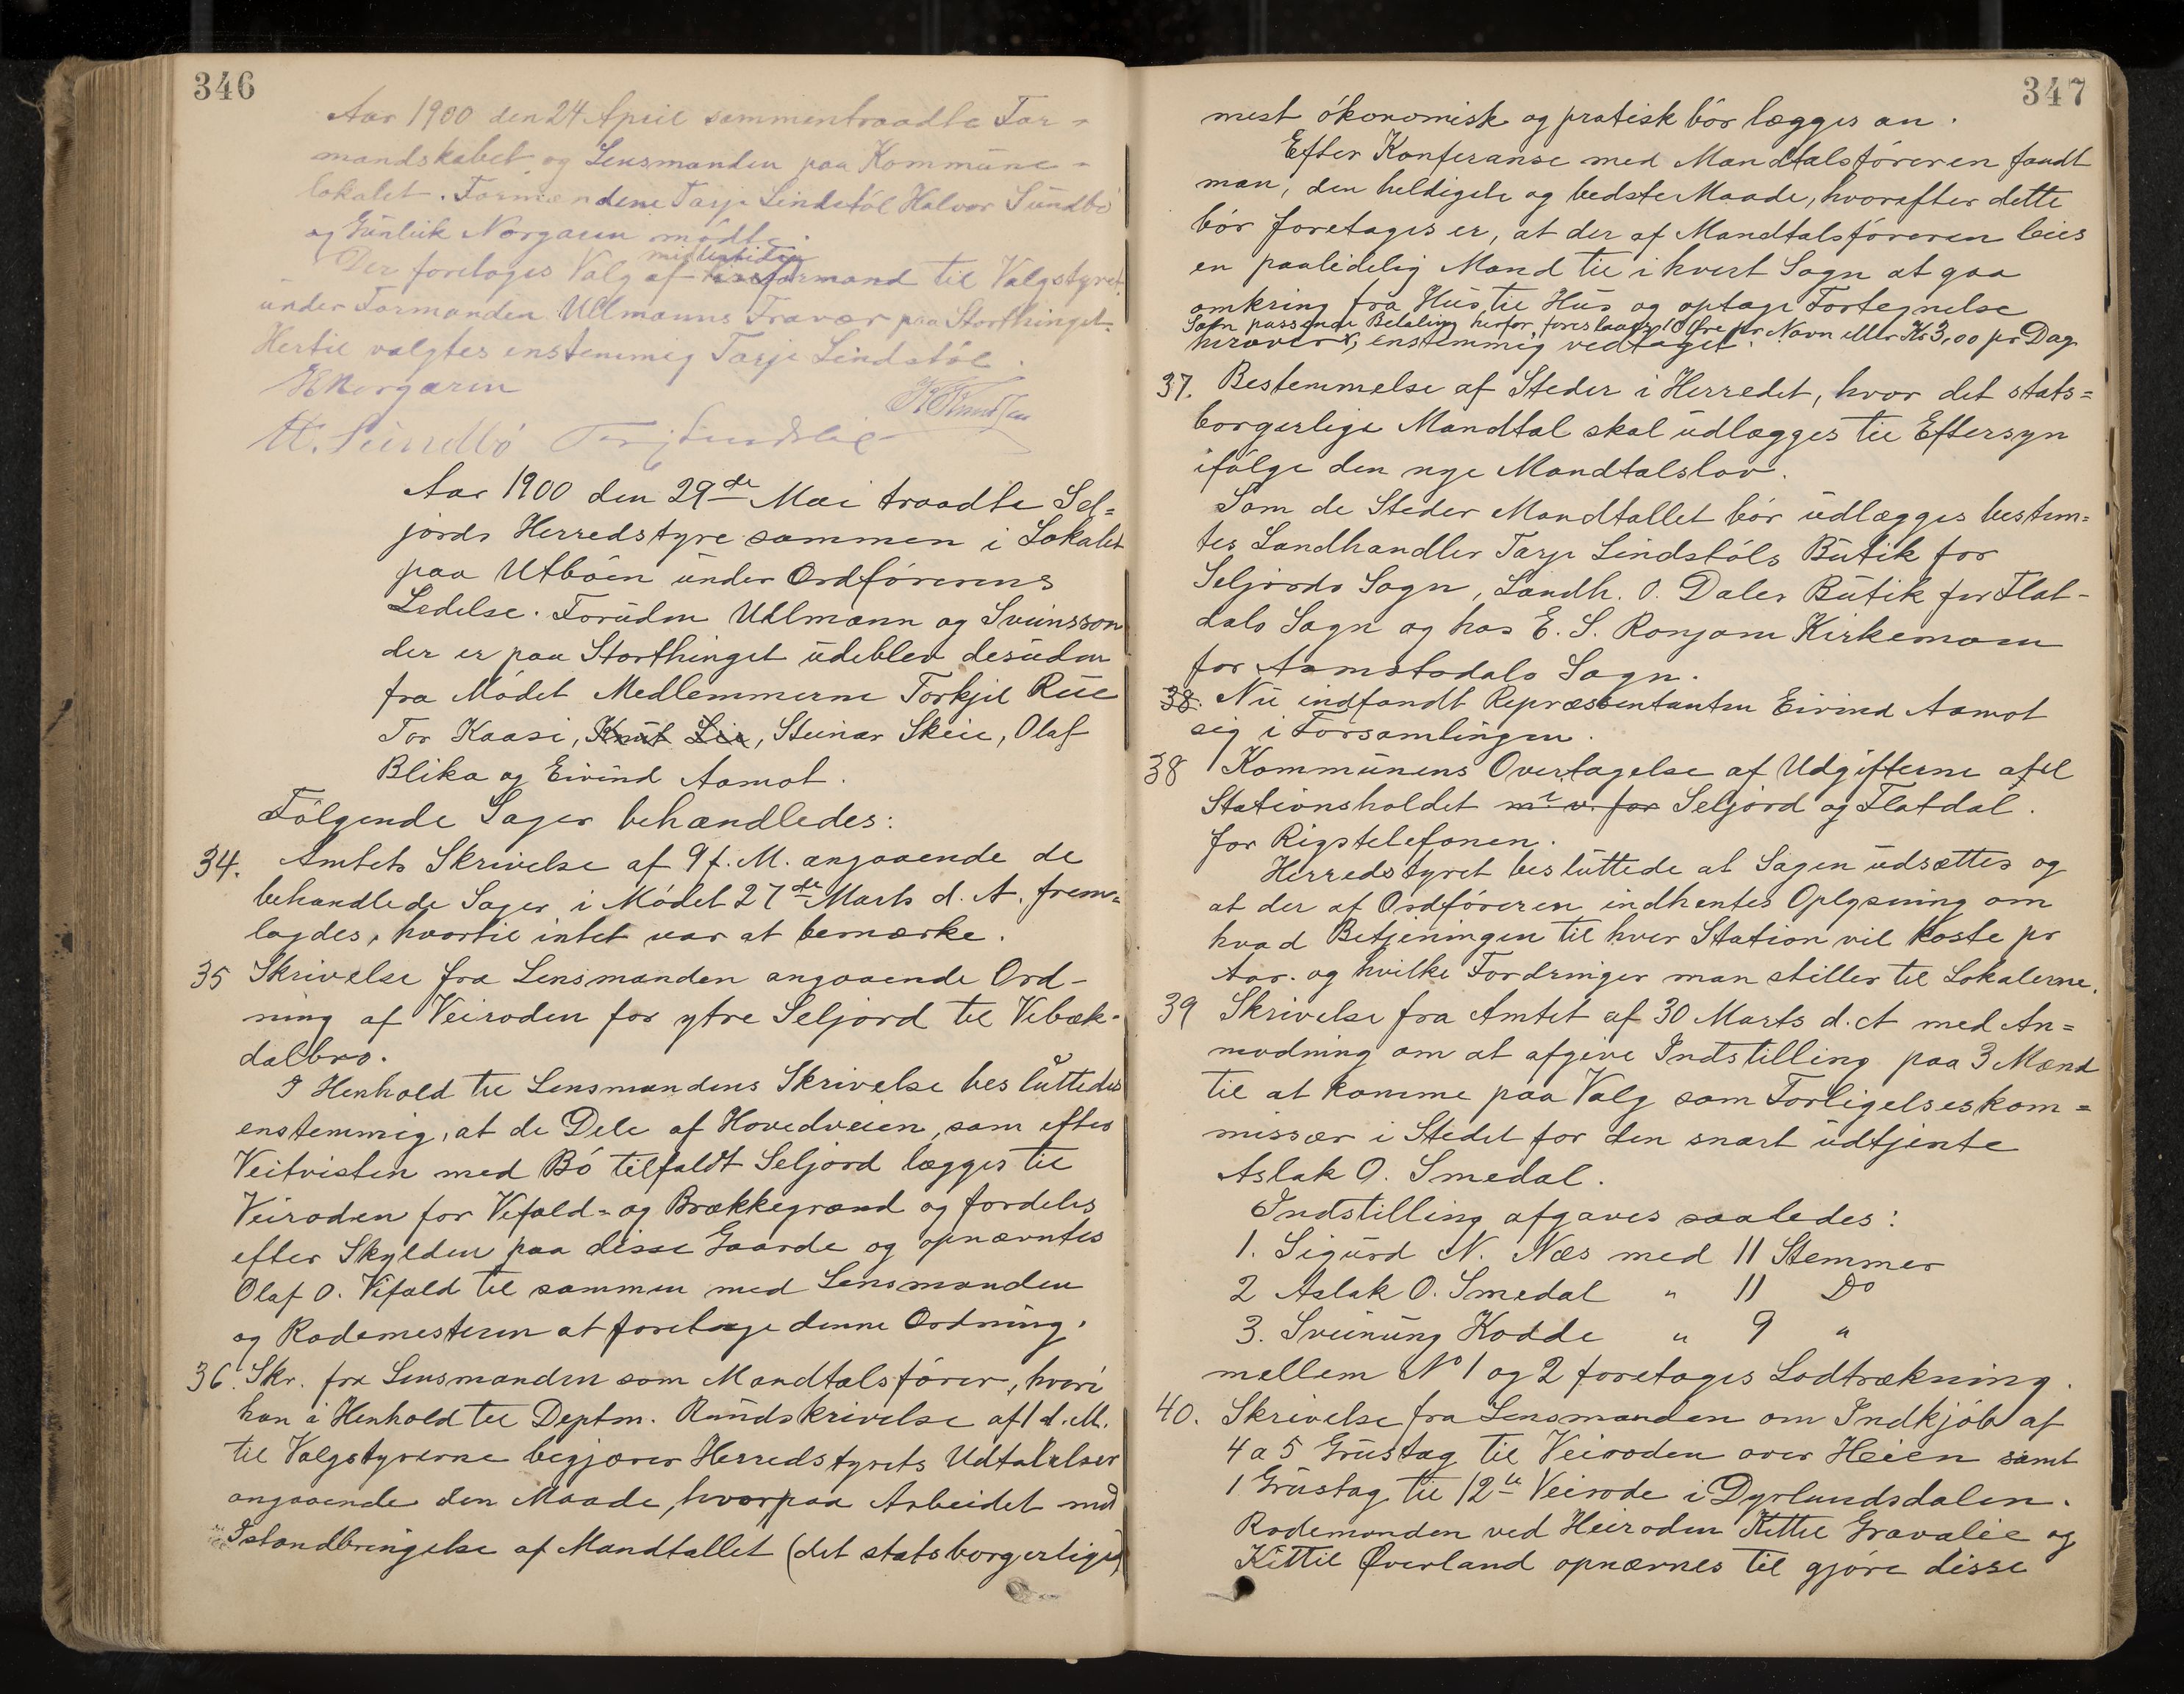 346
Aar 1900 den 24 April sammentraadte For-
mandskabet og Lensmanden paa Kommune-
lokalet. Formændene Tarje Lindstøl Halvor Sundbø
og Gunleik Norgaren mødte.
midlertidig
Der foretoges Valg af formand til Valgstyret
under Formanden Ullmanns Fravær paa Storthinget.
Hertil valgtes enstemmig Tarje Lindstøl.
Norgaren
H. Sundbö
Aar 1900 den 29de Mai traadte Sel=
jords Herredstyre sammen i Lokalet
paa Utbøen under Ordförerens
Ledelse. Foruden Ullmann og Sveinsson
der er paa Storthinget udeblev desuden
fra Mödet Medlemmerne Torkjil Rue
Tor Kaasi, Knut Lie, Steinar Skeie, Olaf
Blika og Eivind Aamot.
Fölgende Sager behandledes:
34. Amtets Skrivelse af 9 f. M. angaaende de
behandlede Sager i Mödet 27de Marts d. A. frem=
lagdes, hvortil intet var at bemærke.
35 Skrivelse fra Lensmanden angaaende Ord-
ning af Veiroden for ytre Seljord til Vebæk-
dalbro.
I Henhold til Lensmandens Skrivelse besluttedes
enstemmig, at de Dele af Hovedveien, som efter
Veitvisten med Bö tilfaldt Seljord lægges til
Veiroden for Vefald- og Brækkegrænd og fordeles
efter Skylden paa disse Gaarde og opnævntes
Olaf O. Vefald til sammen med Lensmanden
og Rodemesteren at foretage denne Ordning.
36. Skr. fra Lensmanden som Mandtalsförer, hvori
han i Henhold til Deptm. Rundskrivelse af 1 d. M.
til Valgstyrerne begjærer Herredstyrets Udtalelser
angaaende den Maade, hvorpaa Arbeidet med
Istandbringelse af Mandtallet (det statsborgerlige)
347
mest ökonomisk og pratisk bör lægges an.
Efter Konferanse med Mandtalsföreren fandt
man, den heldigste og bedste Maade, hvorefter dette
bör foretages er, at der af Mandtalsföreren leies
en paalidelig Mand til i hvert Sogn at gaa
omkring fra Hus til Hus og optage Fortegnelse
Som passende Betaling herfor foreslaaes 10 Øre pr Navn eller Kr 3,00 pr Dag
herover, enstemmig vedtaget.
37. Bestemmelse af Steder i Herredet, hvor det stats=
borgerlige Mandtal skal udlægges til Eftersyn
ifölge den nye Mandtalslov.
Som de Steder Mandtallet bör udlægges bestem=
tes Landhandler Tarje Lindstöls Butik for
Seljords Sogn, Landh. O. Dales Butik for Flat-
dals Sogn og hos E. S. Ronjom Kirkemoen
for Aamotsdals Sogn.
38. Nu indfandt Repræsentanten Eivind Aamot
sig i Forsamlingen.
38 Kommunens Overtagelse af Udgifterne af
Stationsholdet m. v. for Seljord og Flatdal.
for Rigstelefonen.
Herredstyret besluttede at Sagen udsættes og
at der af Ordföreren indhentes Oplysning om
hvad Betjeningen til hver Station vil koste pr
Aar. og hvilke Fordringer man stiller til Lokalerne.
39 Skrivelse fra Amtet af 30 Marts d. A med An=
modning om at afgive Indstilling paa 3 Mænd
til at komme paa Valg som Forligelseskom=
missær i Stedet for den snart udtjente
Aslak O. Smedal.
Indstilling afgaves saaledes:
1. Sigurd N. Næs med 11 Stemmer
2 Aslak O. Smedal " 11 Do
3. Sveinung Kodde " 9 "
mellem No 1 og 2 foretages Lodtrækning.
40. Skrivelse fra Lensmanden om Indkjöb af
4 a 5 Grustag til Veiroden over Heien samt
1 Grustag til 12te Veirode i Dyrlundsdalen.
Rodemanden ved Heiroden Kittil Gravalie og
Kittil Øverland opnævnes til gjöre disse